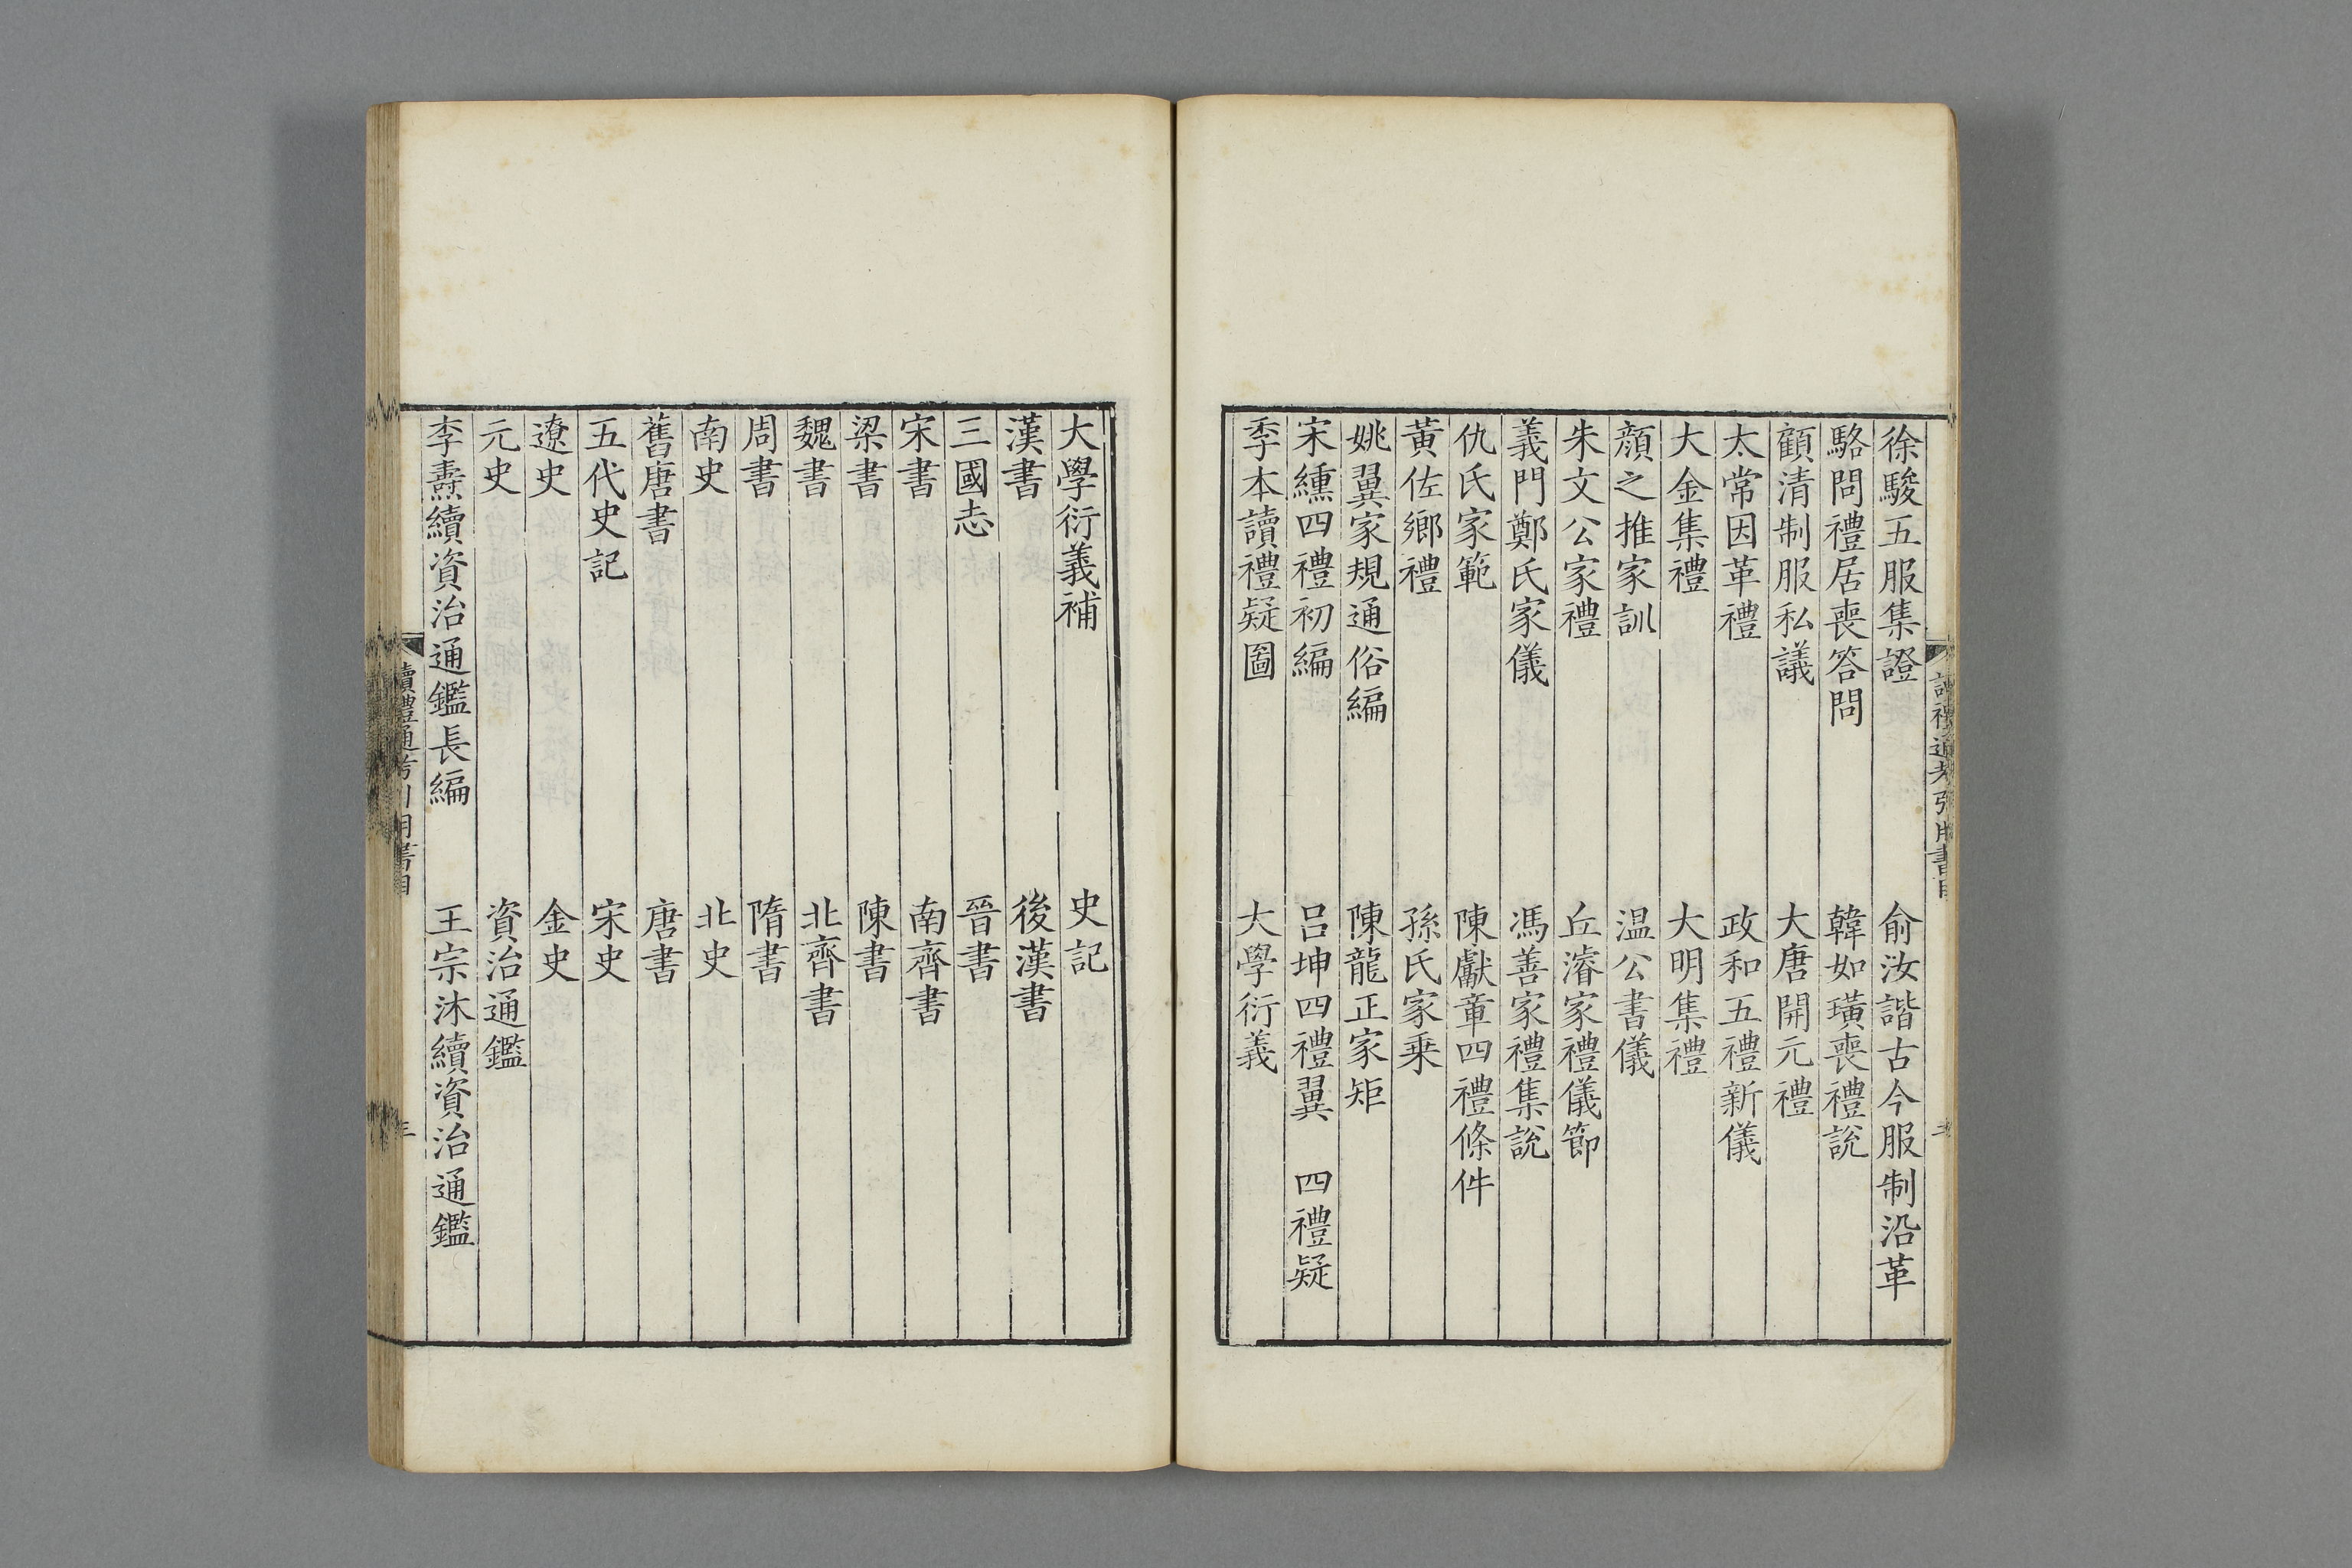 徐駿五服集證　俞汝諧古今服制沿革
駱問禮居喪答問　韓如璜喪禮說
顧清制服私議　大唐開元禮
太常因革禮　政和五禮新儀
大金集禮　大明集禮
顏之推家訓　温公書儀
朱文公家禮　丘濬家禮儀節
義門鄭氏家儀　馮善家禮集說
仇氏家範　陳獻章四禮條件
黃佐鄉禮　孫氏家乗
姚翼家規通俗編　陳龍正家矩
宋纁四禮初編　吕坤四禮翼　四禮疑
季本讀禮疑圖　大學衍義
大學衍義補　史記
漢書　後漢書
三國志　晉書
宋書　南齊書
梁書　陳書
魏書　北齊書
周書　隋書
南史　北史
舊唐書　唐書
五代史記　宋史
遼史　金史
元史　資治通鑑
李燾續資治通鑑長編　王宗沐續資治通鑑
讀禮通考引用書目　三